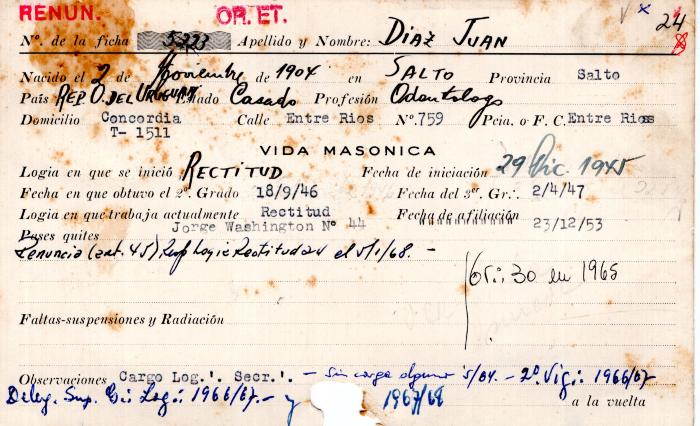 RENUN. OR. ET. 24
Nº. de la ficha 5223 Apellido y Nombre: Díaz Juan
Nacido el 2 de Noviembre de 1904 en SALTO Provincia Salto
País Rep. O. del Uruguay Estado Casado Profesión Odontólogo
Domicilio Concordia Calle Entre Rios Nº. 759 Pcia. o F. C. Entre Rios
T- 1511
VIDA MASONICA
Logia en que se inició RECTITUD Fecha de iniciación 29 Dic. 1945
Fecha en que obtuvo el 2º. Grado 18/9/46 Fecha del 3er. Gr.·. 2/4/47
Logia en que trabaja actualmente Rectitud Fecha de afiliación 23/12/53
Jorge Washington Nº 44
Pases quites
Renuncia (art. 45) Resp Logia Rectitud el 5/1/68. -
Gr.·. 30 en 1965
Faltas-suspensiones y Radiación
Observaciones Cargo Log.'. Secr.'. - Sin cargo alguno 5/64. - 2º. Vig.·. 1966/67
Deleg. Sup. Log.·. 1966/67. - y 1967/68 a la vuelta